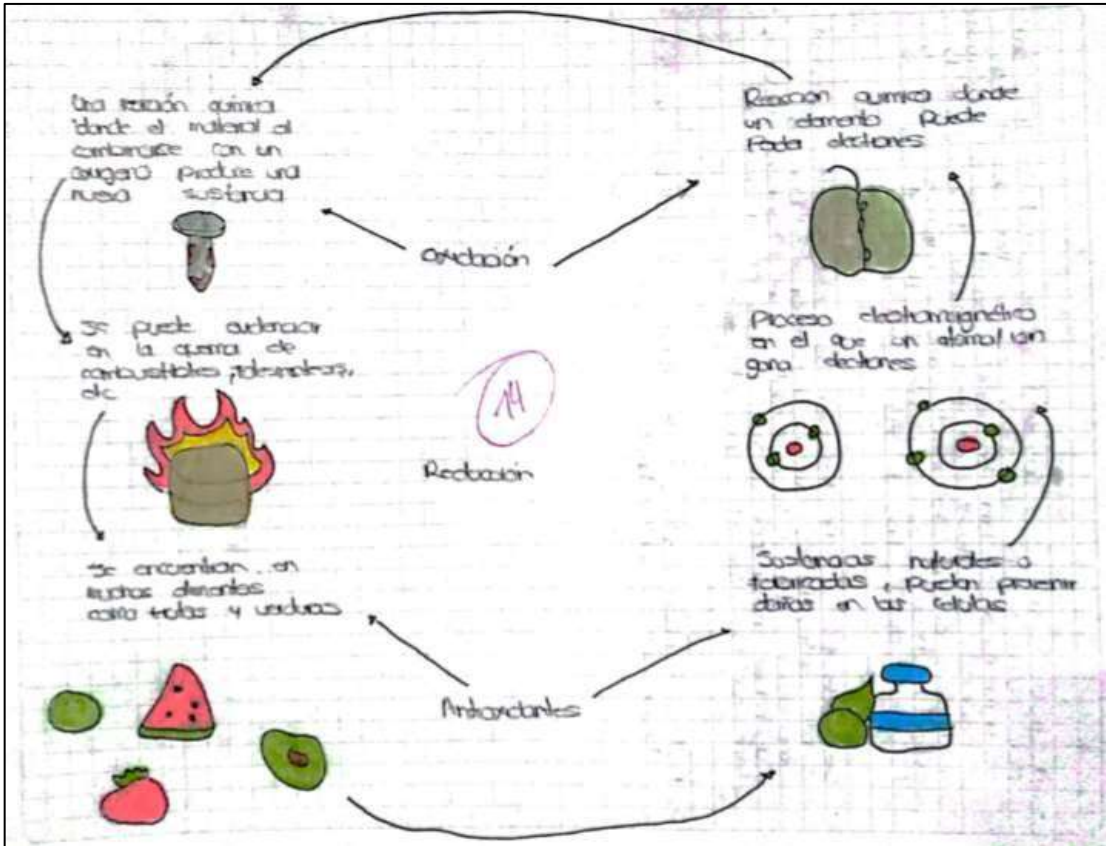 Una reacción química
donde el material al
combinarse con un
oxigeno produce una
nueva sustancia
Reacción química donde
un elemento Puede
Perder electrones
Oxidación
Se puede evidenciar
en la quema de
combustibles,
etc
Proceso electromagnético
en el que un átomo/ion
gana electrones
14
Reducción
Se encuentran en
muchos alimentos
como frutas y verduras
Sustancias naturales o
fabricadas, Pueden prevenir
daños en las células
Antioxidantes